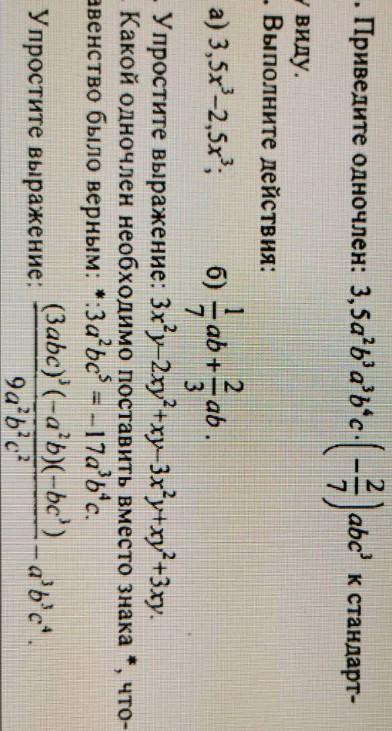 . Приведите одночлен: 3,5a²b³a³b⁴c·(−2/7)abc³ к стандарт-
у виду.
. Выполните действия:
а) 3,5x³−2,5x³; б) 1/7 ab + 2/3 ab.
. Упростите выражение: 3x²y−2xy²+xy−3x²y+xy²+3xy.
Какой одночлен необходимо поставить вместо знака *, что-
авенство было верным: *:3a²bc⁵ = −17a³b⁴c.
Упростите выражение: (3abc)³(−a²b)(−bc³)/9a²b²c² − a³b³c⁴.